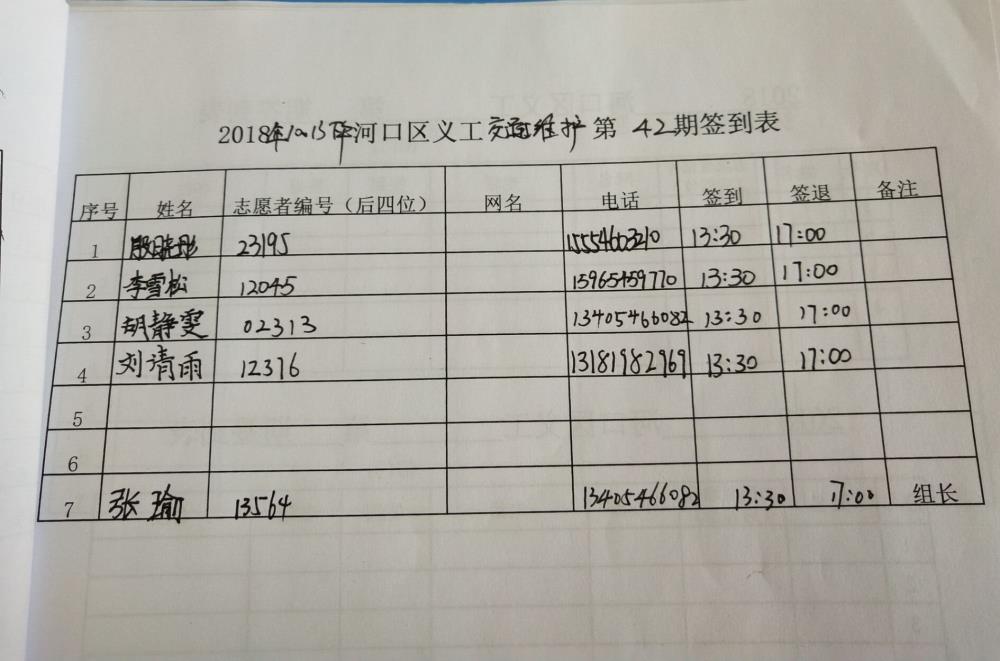 2018年10.13下午河口区义工交通维护第 42期签到表
序号 姓名 志愿者编号（后四位） 网名 电话 签到 签退 备注
1 殷晓彤 23195 15554603210 13:30 17:00
2 李雪松 12045 15965459770 13:30 17:00
3 胡静雯 02313 13405466082 13:30 17:00
4 刘清雨 12376 13181982969 13:30 17:00
5
6
7 张瑜 13564 13405466082 13:30 17:00 组长